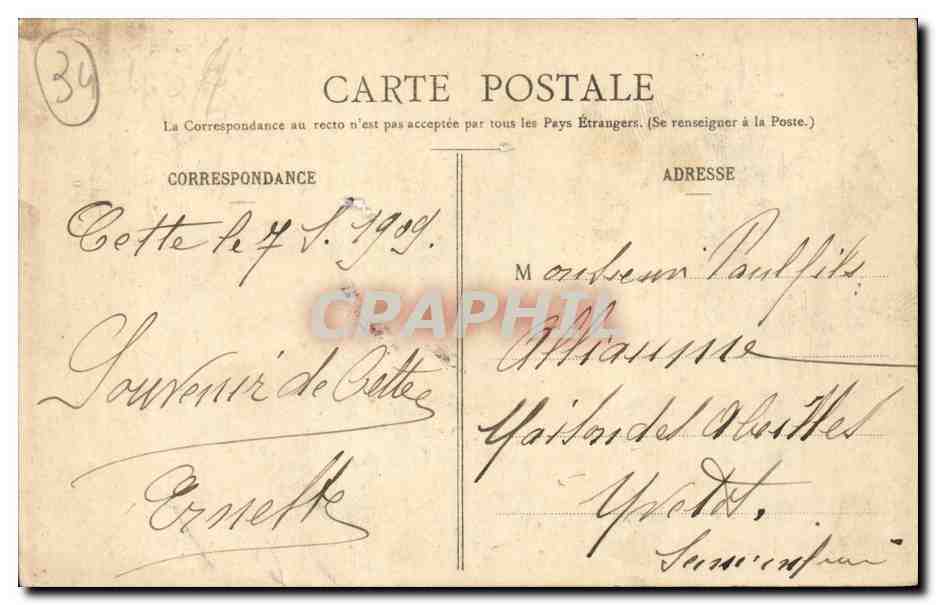 34
CARTE POSTALE
La Correspondance au recto n'est pas acceptée par tous les Pays Étrangers. (Se renseigner à la Poste.)
CORRESPONDANCE
Cette le 7 S. 1909.
Souvenir de Cette
Ernest
ADRESSE
Monsieur Paul fils
Alliaume
Maison des Abeilles
Yvetot.
Seine inf
CPAPHIL